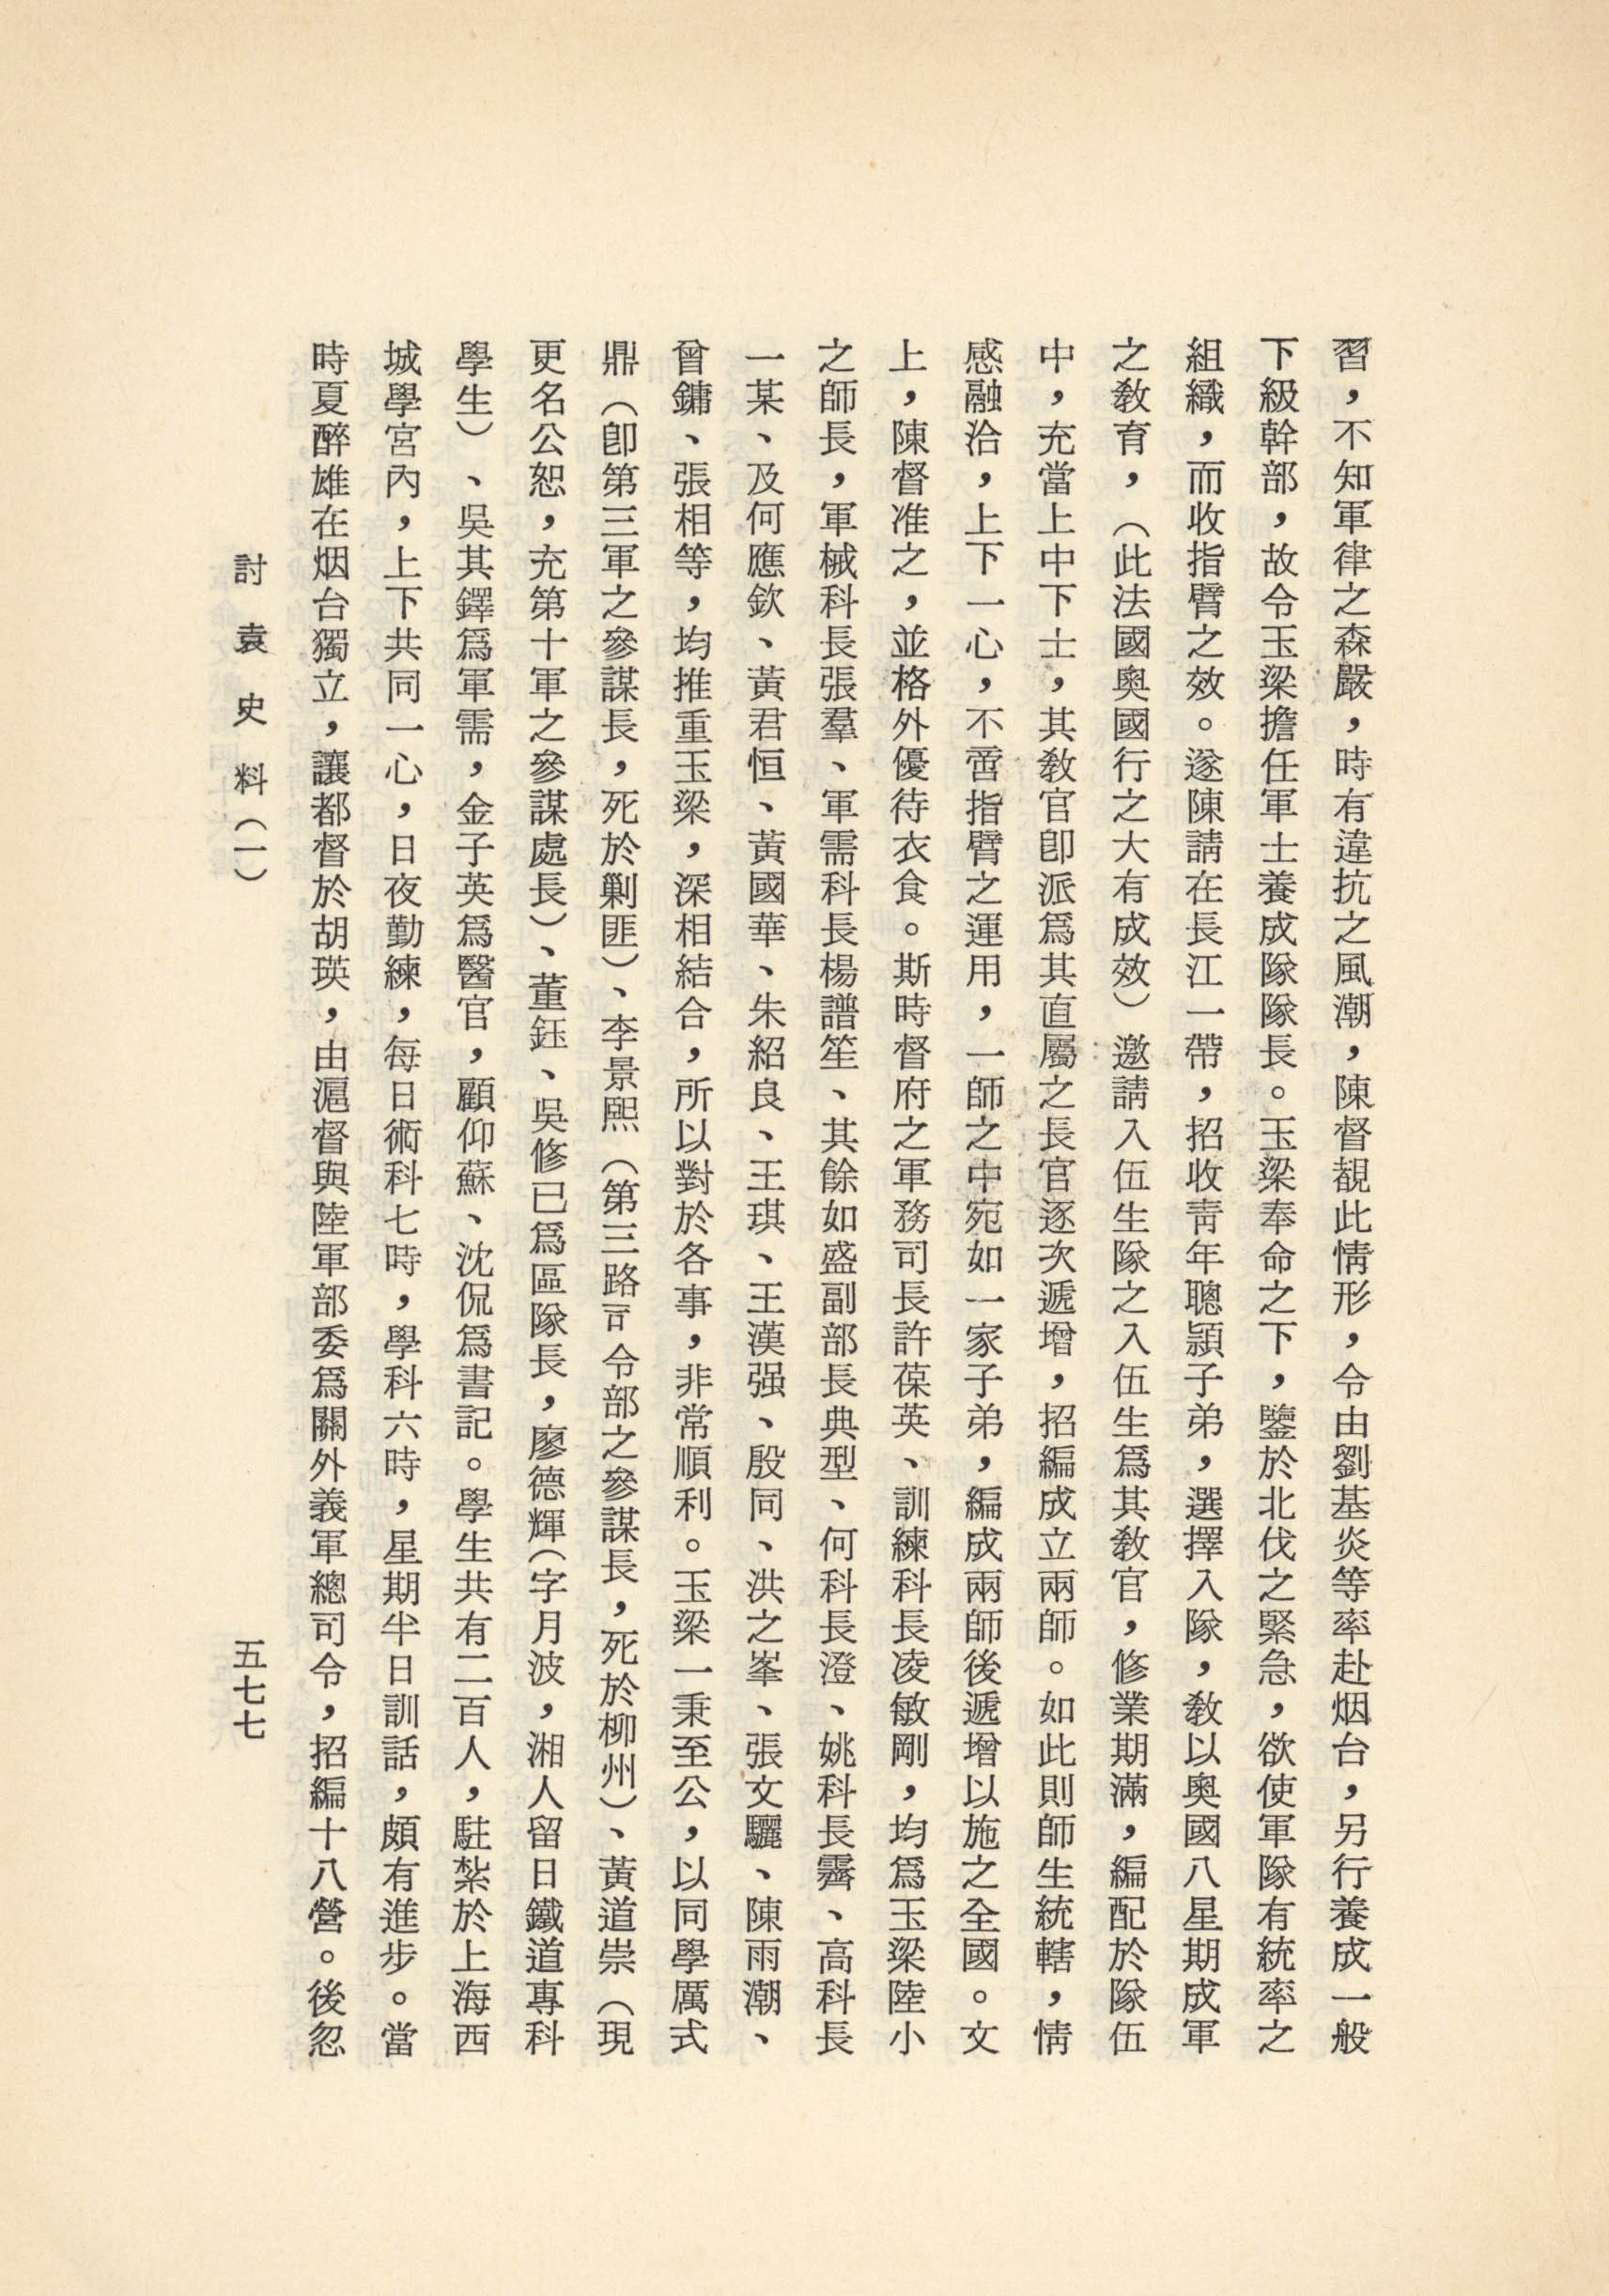 習，不知軍律之森嚴，時有違抗之風潮，陳督覩此情形，令由劉基炎等率赴烟台，另行養成一般
下級幹部，故令玉梁擔任軍士養成隊隊長。玉梁奉命之下，鑒於北伐之緊急，欲使軍隊有統率之
組織，而收指臂之效。遂陳請在長江一帶，招收靑年聰頴子弟，選擇入隊，敎以奧國八星期成軍
之敎育，（此法國奧國行之大有成效）邀請入伍生隊之入伍生爲其敎官，修業期滿，編配於隊伍
中，充當上中下士，其敎官卽派爲其直屬之長官逐次遞增，招編成立兩師。如此則師生統轄，情
感融洽，上下一心，不啻指臂之運用，一師之中宛如一家子弟，編成兩師後遞增以施之全國。文
上，陳督准之，並格外優待衣食。斯時督府之軍務司長許葆英、訓練科長凌敏剛，均爲玉梁陸小
之師長，軍械科長張羣、軍需科長楊譜笙、其餘如盛副部長典型、何科長澄、姚科長霽、高科長
一某、及何應欽、黃君恒、黃國華、朱紹良、王琪、王漢强、殷同、洪之峯、張文驪、陳雨潮、
曾鏞、張相等，均推重玉梁，深相結合，所以對於各事，非常順利。玉梁一秉至公，以同學厲式
鼎（卽第三軍之參謀長，死於剿匪）、李景熙（第三路司令部之參謀長，死於柳州）、黃道崇（現
更名公恕，充第十軍之參謀處長）、董鈺、吳修已爲區隊長，廖德輝（字月波，湘人留日鐵道專科
學生）、吳其鐸爲軍需，金子英爲醫官，顧仰蘇、沈侃爲書記。學生共有二百人，駐紮於上海西
城學宮內，上下共同一心，日夜勤練，每日術科七時，學科六時，星期半日訓話，頗有進步。當
時夏醉雄在烟台獨立，讓都督於胡瑛，由滬督與陸軍部委爲關外義軍總司令，招編十八營。後忽
討袁史料（一）
五七七